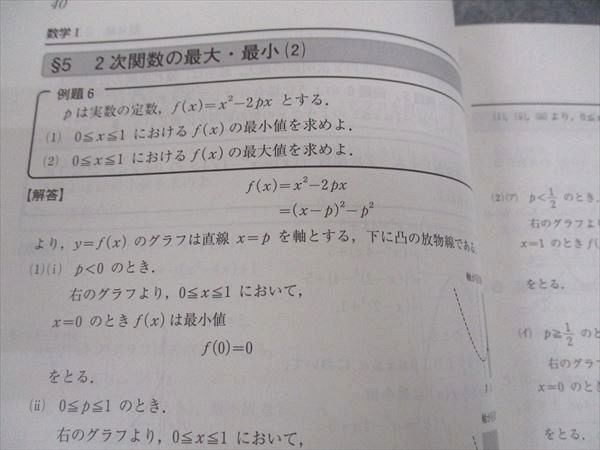 40
数学Ⅰ
§5 2次関数の最大・最小(2)
例題6
pは実数の定数,f(x)=x²-2px とする.
(1) 0≦x≦1 における f(x) の最小値を求めよ.
(2) 0≦x≦1 における f(x) の最大値を求めよ.
【解答】
f(x)=x²-2px
=(x-p)²-p²
より,y=f(x) のグラフは直線 x=p を軸とする,下に凸の放物線である.
(1)(i) p<0 のとき.
右のグラフより,0≦x≦1 において,
x=0 のとき f(x) は最小値
f(0)=0
をとる.
(ii) 0≦p≦1 のとき.
右のグラフより,0≦x≦1 において,
より,0≦x
(2)(ア) p<1/2 のとき.
右のグラフ
x=1 のとき f(
をとる.
(イ) p≧1/2 のと
右のグラ
x=0 のと
をとる.